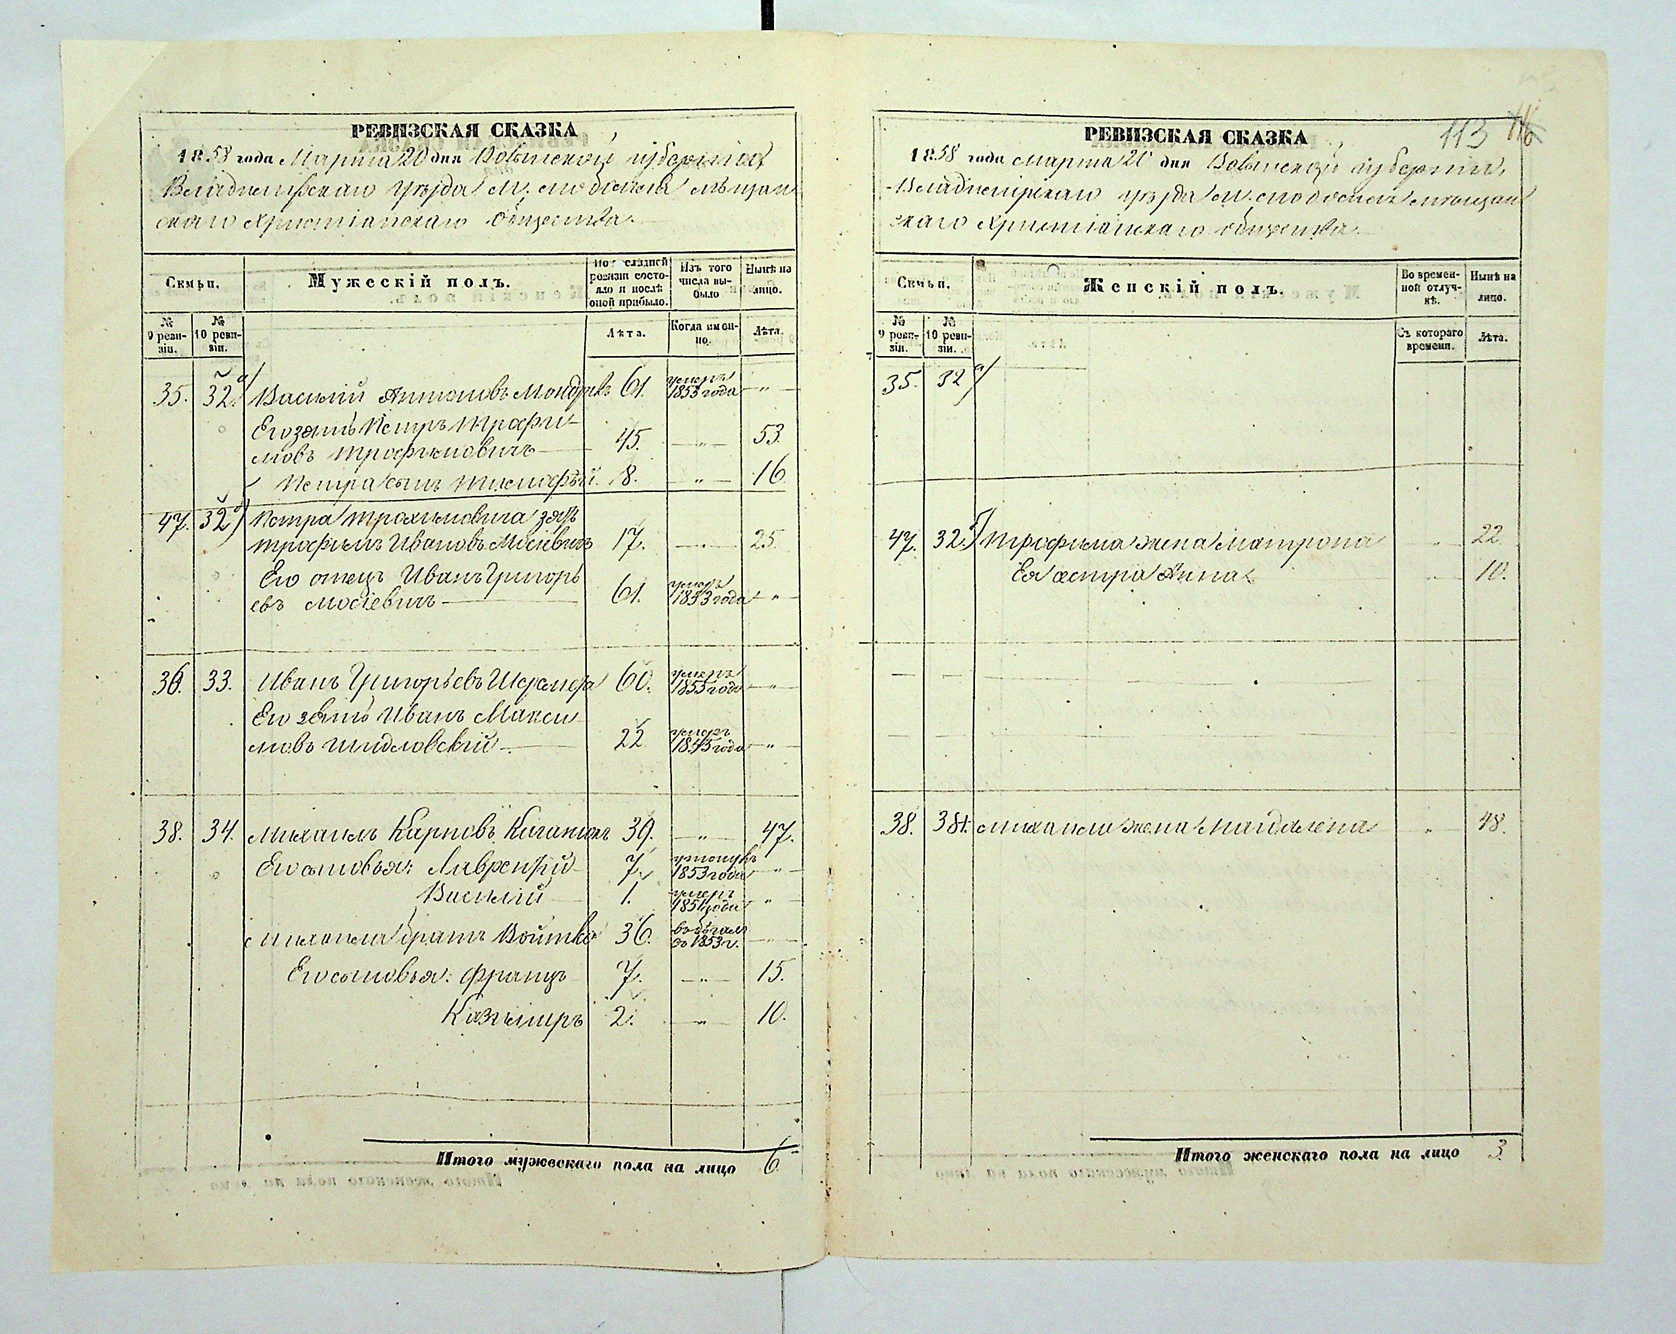 РЕВИЗСКАЯ СКАЗКА
1858 года Марта 20 дня Волынской губернии
Владимирскаго уѣзда м. мещан
скаго Христіанскаго общества
Семьи.
Мужескій полъ.
По послѣдней ревизіи состояло и послѣ оной прибыло.
Изъ того числа выбыло
Нынѣ на лицо.
№ 9 ревизіи.
№ 10 ревизіи.
Лѣта.
Когда именно.
Лѣта.
35. 32 а) Василій Антоновъ 61. умеръ 1853 года — „ —
Его зять Петръ Трофи-
мовъ Трофимовичъ 45. — „ — 53.
Петра сынъ 8. — „ — 16.
47. 32 б) Петра Трохимовича зять
Трофимъ Ивановъ Мосіевичъ 17. — „ — 25.
Его отецъ Иванъ Григорь
евъ Мосіевичъ 61. умеръ 1853 года — „ —
36. 33. Иванъ Григорьевъ 60. умеръ 1855 года — „ —
Его зять Иванъ Макси
мовъ Шидловскій 22 умеръ года — „ —
38. 34. Михаилъ Карповъ 39. — „ — 47.
Его сыновья: Лаврентій 7. 1853 года — „ —
Василій 1. умеръ 1851 года — „ —
Михаила братъ Войтко 36. въ бѣгахъ съ 1853 г. — „ —
Его сыновья: Францъ 7. — „ — 15.
Казимиръ 2. — „ — 10.
Итого мужескаго пола на лицо 6
113 116
РЕВИЗСКАЯ СКАЗКА
1858 года марта 20 дня Волынской губернии,
Владимирскаго уѣзда м. мещан
скаго Христіанскаго общества
Семьи.
Женскій полъ.
Во временной отлучкѣ.
Нынѣ на лицо.
№ 9 ревизіи.
№ 10 ревизіи.
Съ котораго времени.
Лѣта.
35. 32 а)
47. 32. б) Трофима жена Матрона „ 22.
Ея сестра Анна „ 10.
38. 34. Михаила жена Магдалена „ 48.
Итого женскаго пола на лицо 3.